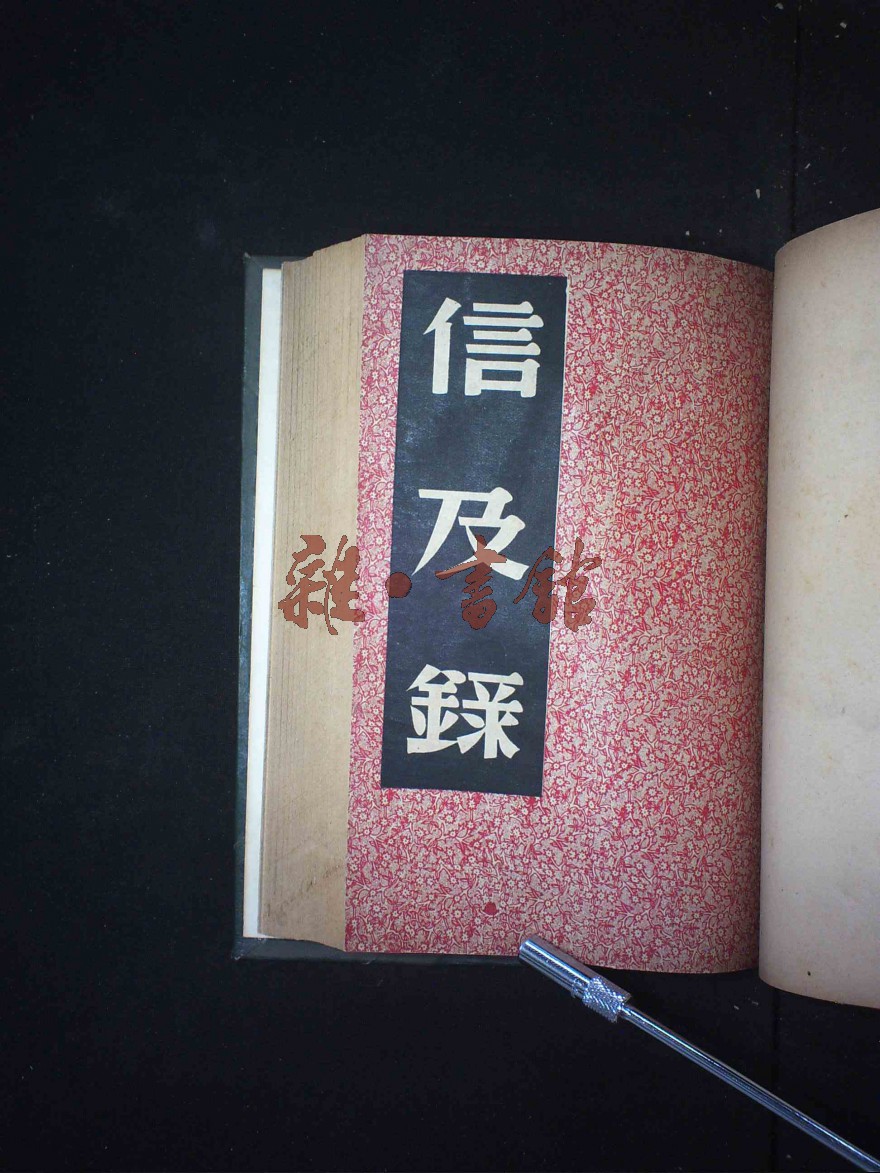 信及錄
雜·書館